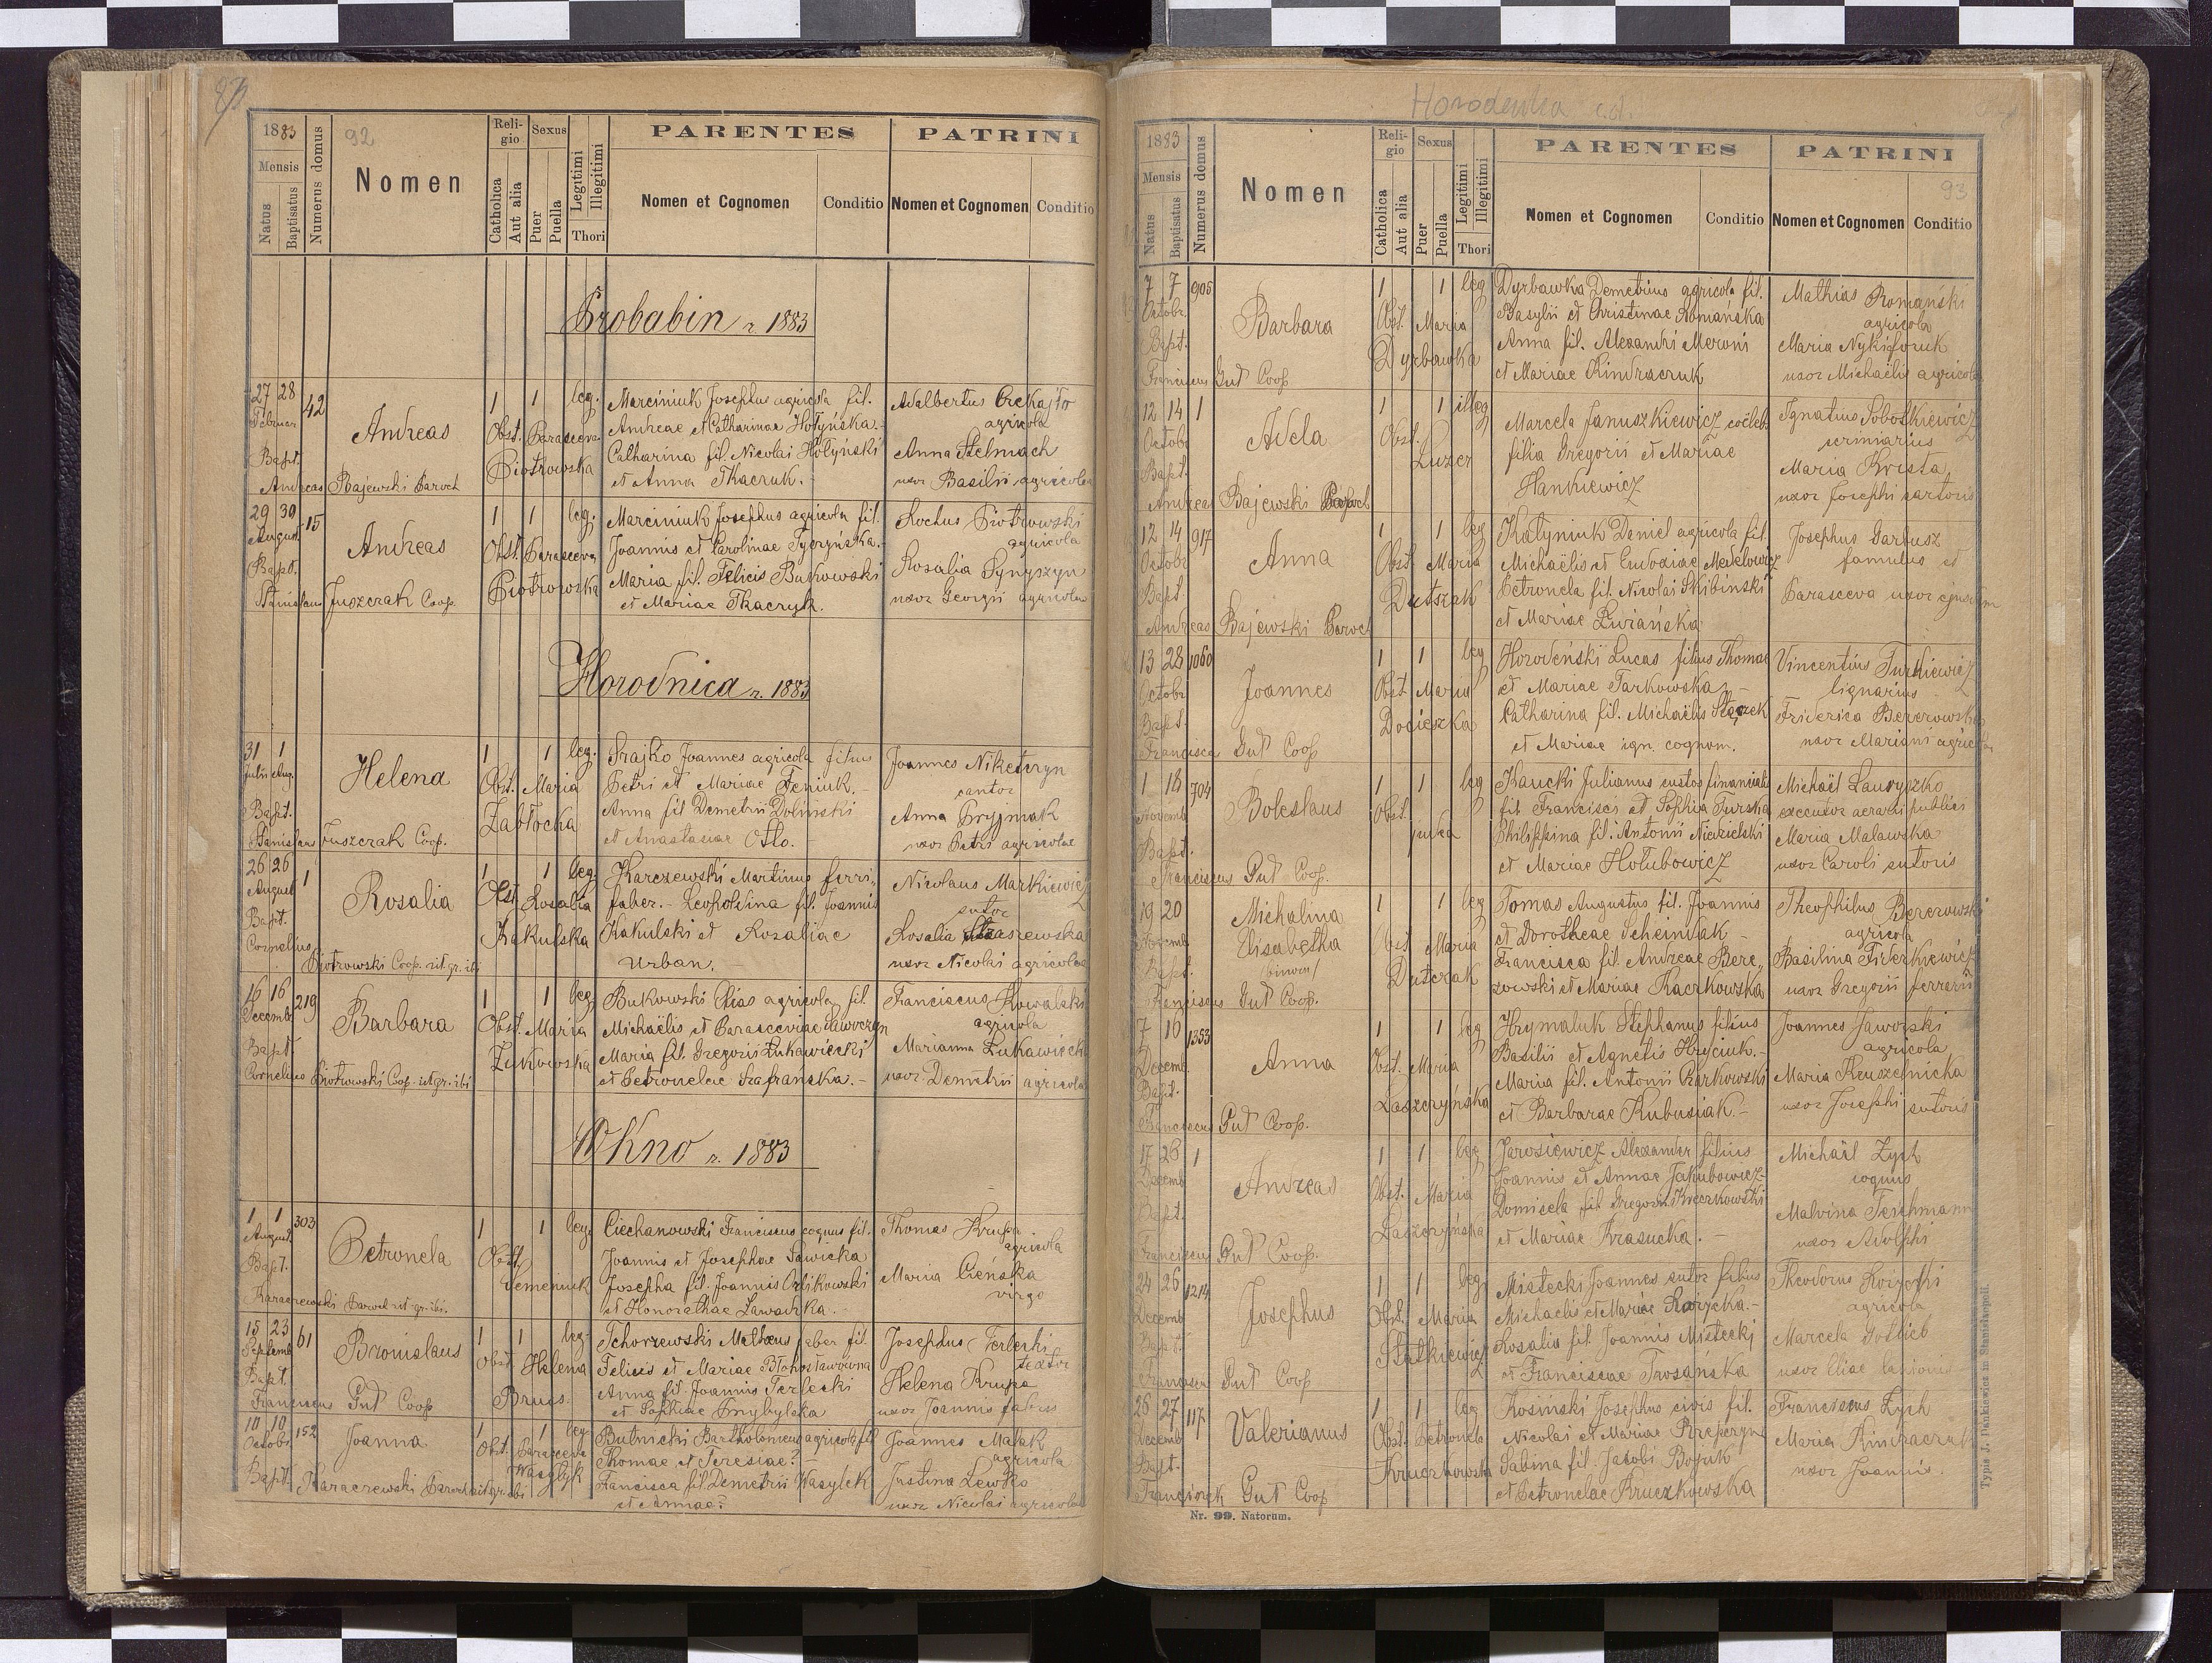 92
1883
Mensis
Natus
Baptisatus
Numerus domus
Nomen
Religio
Catholica
Aut alia
Sexus
Puer
Puella
Legitimi
Illegitimi
Thori
PARENTES
Nomen et Cognomen
Conditio
PATRINI
Nomen et Cognomen
Conditio
Probabin r. 1883
27 28
Februar
42
Andreas
1 1 leg.
Obst. Parasceva
Piotrowska
Marciniuk Josephus agricola fil.
Andreae et Catharinae Hołyńska.-
Catharina fil. Nicolai Hołyński
et Anna Tkaczuk.-
Adalbertus
agricola
Anna Stelmach
uxor Basilii agricolae
Bapt.
Andreas Bajewski Paroch
29 30
August
15
Andreas
1 1 leg.
Obst. Parasceva
Piotrowska
Marciniuk Josephus agricola fil.
Joannis et Carolinae Tyczyńska.-
Maria fil. Felicis Bukowski
et Mariae Tkaczyk.
Rochus Piotrowski
agricola
Rosalia Synyszyn
uxor Georgii agricolae
Bapt.
Stanislaus Juszczak Coop.
Horodnica r. 1883
31 1
Julii Aug.
Helena
1 1 leg.
Obst. Maria
Zabłocka
Srajko Joannes agricola filius
Petri et Mariae Feniuk.-
Anna fil Demetrii Doliński
et Anastasiae Otto.
Joannes Niketczyn
cantor
Anna Pryjmak
uxor Petri agricolae
Bapt.
Stanislaus Juszczak Coop.
26 26
August
1
Rosalia
1 1 leg.
Obst. Rosalia
Kakulska
Karczewski Martinus ferri-
faber.- Leopoldina fil. Joannis
Kakulski et Rosaliae
Urban.
Nicolaus Markiewicz
sutor
Rosalia
uxor Nicolai agricolae
Bapt.
Cornelius
Piotrowski Coop. rit. gr. ibi
16 16
Decemb.
219
Barbara
1 1 leg
Obst. Maria
Żukowska
Bukowski Elias agricola fil.
Michaëlis et Parasceviae Ławoczyn
Maria fil. Gregorii Łukawiecki
et Petronelae Szafrańska.-
Franciscus Kowalski
agricola
Marianna Łukawiecki
uxor Demetrii agricola
Bapt.
Cornelius Piotrowski Coop. rit. gr. ibi
Okno r. 1883
1 1
August
303
Petronela
1 1 leg.
Obst.
Semeniuk
Ciechanowski Franciscus coquus fil.
Joannis et Josephae Sawicka
Josepha fil. Joannis Orlikowski
et Honorathae Zawadzka.-
Thomas Krupa
agricola
Maria Cienska
virgo
Bapt.
Karaczewski Paroch rit. gr. ibi.
15 23
Septemb
61
Bronislaus
1 1 leg.
Obst. Helena
Brucs.
Tchorzewski Matheus faber fil.
Felicis et Mariae Błahosławówna
Anna fil. Joannis Terlecki
et Sophiae Przybylska
Josephus Terlecki
textor
Helena Krupa
uxor Joannis fabris
Bapt.
Franciscus Gut Coop
10 10
Octobr
152
Joanna
1 1 leg
Obst. Parasceva
Wasylyk
Butnicki Bartholomeus agricola fil
Thomae et Teresiae?
Francisca fil. Demetrii Wasylek
et Annae?
Joannes Malak
agricola
Justina Lewko
uxor Nicolai agricolae
Bapt. Karaczewski Paroch rit gr ibi
Horodenka c.d.
1883
Mensis
Natus
Baptisatus
Numerus domus
Nomen
Religio
Catholica
Aut alia
Sexus
Puer
Puella
Legitimi
Illegitimi
Thori
PARENTES
Nomen et Cognomen
Conditio
PATRINI
93
Nomen et Cognomen
Conditio
7 7
Octobr.
905
Barbara
1 1 leg
Obst. Maria
Dyrbawka
Dyrbawka Demetrius agricola fil.
Basylii et Christinae Romańska
Anna fil. Alexandri Meroni
et Mariae Kindraczuk
Mathias Romański
agricola
Maria Nykiforuk
uxor Michaëlis agricola
Bapt.
Franciscus Gut Coop
12 14
Octobr
1
Adela
1 1 illeg
Obst.
Luzer
Marcela Januszkiewicz coëlebs
filia Gregorii et Mariae
Hankiewicz
Ignatius Sobotkiewicz
scriniarius
Maria Krista,
uxor Josephi sartoris
Bapt.
Andreas Bajewski Paroch
12 14
Octobr
917
Anna
1 1 leg
Obst Maria
Dutszak
Katyniuk Daniel agricola fil.
Michaëlis et Eudoxiae Medelowicz
Petronela fil. Nicolai Skibiński
et Mariae Luzańska
Josephus Garbusz
famulus et
Parasceva uxor ejusdem
Bapt
Andreas Bajewski Paroch
13 28
Octobr
1060
Joannes
1 1 leg
Obst. Maria
Docieszka
Horodeński Lucas filius Thomae
et Mariae Tarkowska.-
Catharina fil. Michaëlis
et Mariae ign. cognom.
Vincentius Turkiewicz
lignarius
Friderica Bererowska
uxor Mariani agricolae
Bapt
Francisca Gut Coop
1 18
Novemb
704
Boleslaus
1 1 leg
Obst.
Kaucki Julianus custos financialis
fil. Francisci et Sophia Turska
Philippina fil. Antonii Niedzielski
et Mariae Hołubowicz
Michaël Lauryszko
executor aerarii publici
Maria Malawska
uxor Caroli sutoris
Bapt.
Franciscus Gut Coop.
19 20
Novemb.
Michalina
Elisabetha
/binom/
1 1 leg
Obst Maria
Dutczak
Tomas Augustus fil. Joannis
et Dorotheae Scheindak -
Francisca fil. Andreae Bere-
zowski et Mariae Kaczkowska
Theophilus Bererowski
agricola
Basilina Fiderkiewicz
uxor Gregorii ferrarii
Bapt.
Franciscus Gut Coop.
7 16
Decemb.
1353
Anna
1 1 leg
Obst. Maria
Łaszczyńska
Hrymaluk Stephanus filius
Basilii et Agnetis Hryciuk.-
Maria fil. Antonii Czarkowski
et Barbarae Kubusiak.-
Joannes Jaworski
agricola
Maria Kruszelnicka
uxor Josephi sutoris
Bapt.
Franciscus Gut Coop.
17 26
Decemb
1
Andreas
1 1 leg
Obst. Maria
Łaszczyńska
Jarosiewicz Alexander filius
Joannis et Annae Jakubowicz
Domicela fil Gregorii Kreczkowski
et Mariae Krasucka.-
Michaël Zych
coquus
Malvina Teschmann
uxor Adolphi
Bapt.
Franciscus Gut Coop.
24 26
Decemb
1214
Josephus
1 1 leg
Obst. Maria
Statkiewicz
Mistecki Joannes sutor filius
Michaëlis et Mariae Rożycka.-
Rosalia fil. Joannis Mistecki
et Franciscae Trosańska
Theodorus Kożycki
agricola
Marcela Gottlieb
uxor Eliae
Bapt.
Franciscus Gut Coop
26 27
Decemb
117
Valerianus
1 1 leg
Obst. Petronela
Kruczkowska
Kosiński Josephus civis fil.
Nicolai et Mariae Przepczyn
Sabina fil. Jacobi Bojuk
et Petronelae Kruczkowska
Franciscus Zych
Maria Kindraczuk
uxor Joannis.
Bapt.
Franciszek Gut Coop
Nr. 99. Natorum.
Typis J. Dankiewicz in Stanislaopoli.